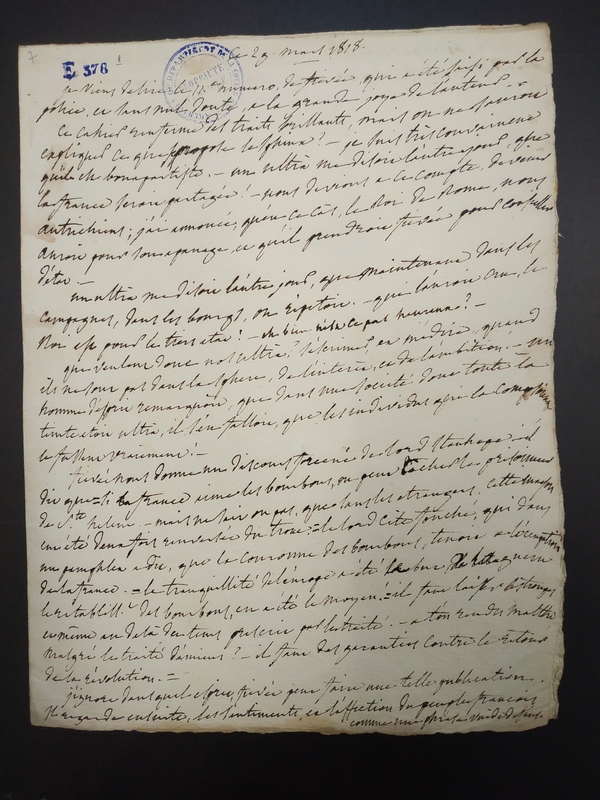 7
E 378
Ce 29. mars 1818.
je viens de lire le 11.e numero, de fiévée, qui a été saisi par la
police, ce sans nul doute, a la grande joye de l'auteur. —
Ce cahier renferme des traits brillants, mais on ne sauroit
expliquer ce que propose le sphinx? — je suis très convaincue
qu'il est bonapartiste. — un ultra me disoit l'autre jour, que
la france seroit partagée! — nous devions a ce compte, devenir
autrichiens; j'ai annoncé, qu'en ce cas, le Roi de Rome, nous
auroit pour son apanage, et qu'il prendroit fiévée pour conseiller
d'état. —
un ultra me disoit l'autre jour, que maintenant dans les
campagnes, dans les bourgs, on répétoit. — qui l'auroit cru, le
Roi est pour le tiers état! — eh bien n'est ce pas heureux? —
que veulent donc nos ultra? s'escrimer, en médire, quand
ils ne sont pas dans la sphere, de l'interêt, et de l'ambition. — un
homme d'esprit remarquoit, que dans une société dont toute la
teinte étoit ultra, il s'en falloit, que les individus qui la composoient
le fussent vraiment! —
fiévée nous donne un discours forcené de lord Stanhope. il
dit que = si la france aime les bourbons, on peut lâcher le prisonnier
de S.te helene. — mais ne sait on pas, que sans les etrangers, cette maison
eut été deux fois renversée du trone. = le lord cite fouché, qui dans
un pamphlet a dit, que la couronne des bourbons, tenoit a l'occupation
de la france. = la tranquillité de l'europe a été le but de la guerre
le rétabliss.t des bourbons, en a été le moyen. = il faut laisser les troupes
et même au delà du tems prescrit par le traité. — a t'on rendu malthe
malgré le traité d'amiens? — il faut des garanties contre le retour
de la revolution. =
j'ignore dans quel esprit, fiévée peut faire une telle publication.
Il regarde ensuite, les sentiments, et l'affection du peuple françois
comme une phrase vuide de sens.